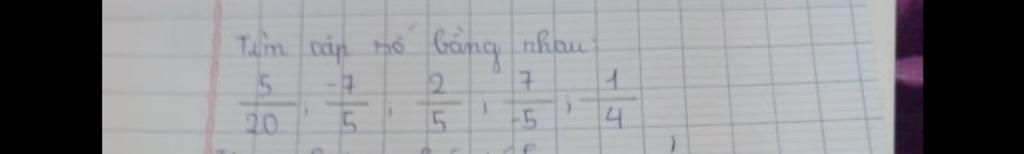 Tìm cặp số bằng nhau:
5/20 ; -7/5 ; 2/5 ; 7/-5 ; 1/4